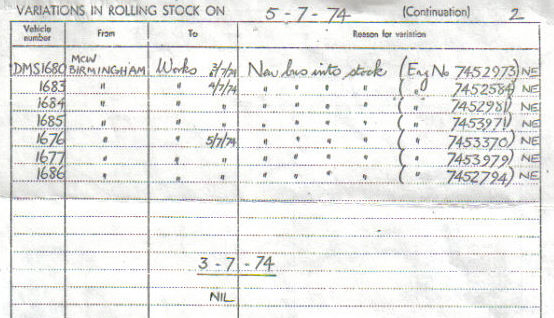 VARIATIONS IN ROLLING STOCK ON 5 - 7 - 74 (Continuation) 2
Vehicle number From To Reason for variation
DMS1680 MCW BIRMINGHAM Works 3/7/74 New bus into stock (Eng No 7452973) NE
1683 " " 4/7/74 " " " " ( " 7452584) NE
1684 " " " " " " " ( " 7452981) NE
1685 " " " " " " " ( " 7453971) NE
1676 " " 5/7/74 " " " " ( " 7453370) NE
1677 " " " " " " " ( " 7453979) NE
1686 " " " " " " " ( " 7452794) NE
3 - 7 - 74
NIL